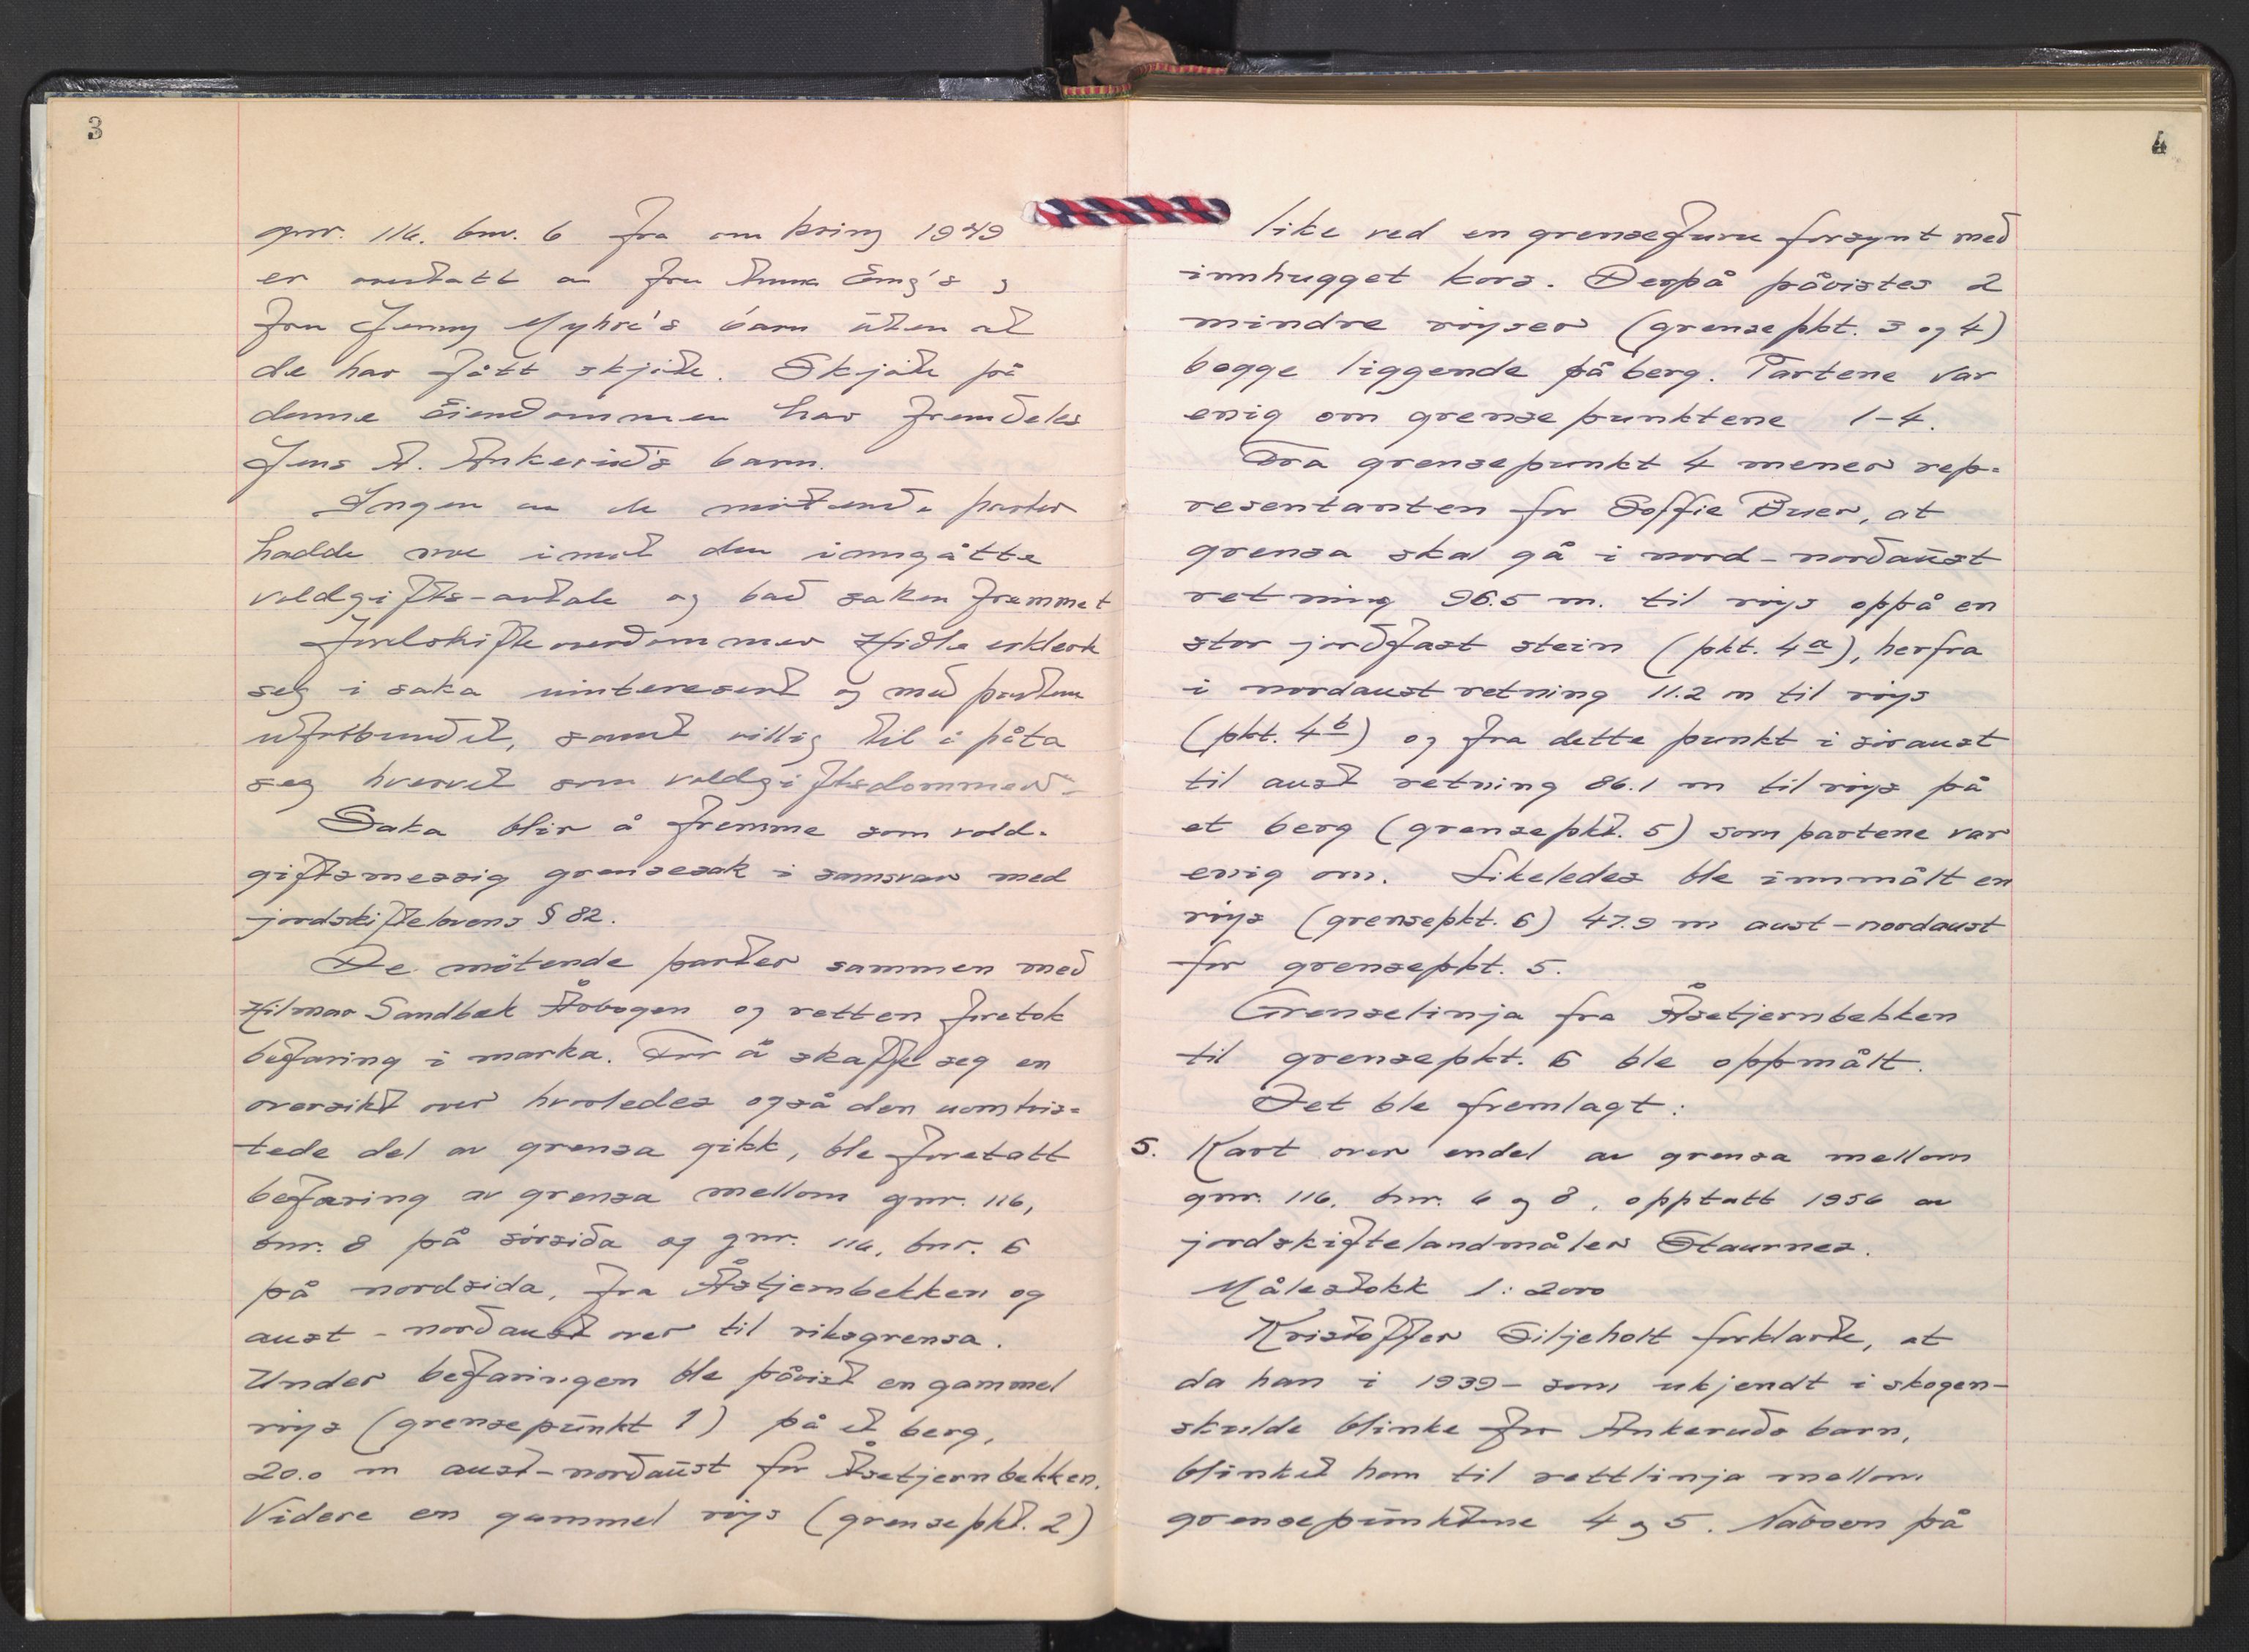 3
gnr. 116. bnr. 6 fra omkring 1949
er overtatt av fru Anna Eng's og
fru Jenny Myhre's barn uten at
de har fått skjöte. Skjöte på
denne eiendommen har fremdeles
Jens A. Ankerud's barn.
Ingen av de mötende parter
hadde noe imot den inngåtte
voldgifts-avtale og bad saken fremmet
Jordskifteoverdommer Hidle erklerte
seg i saka uinteresert og med partene
uforbundet, samt villig til å påta
seg hvervet som voldgiftsdommer.
Saka blir å fremme som vold-
giftsmessig grensesak i samsvar med
jordskiftelovens § 82.
De mötende parter sammen med
Hilmar Sandbek Åsbogen og retten foretok
befaring i marka. For å skaffe seg en
oversikt over hvorledes også den uomtvis=
tede del av grensa gikk, ble foretatt
befaring av grensa mellom gnr. 116,
bnr. 8 på sörsida og gnr. 116, bnr. 6
på nordsida, fra Åstjernbekken og
aust-nordaust over til riksgrensa.
Under befaringen ble påvist en gammel
röys (grensepunkt 1) på et berg,
20.0 m aust-nordaust for Åsetjernbekken.
Videre en gammel röys (grensepkt. 2)
4
like ved en grensefuru forsynt med
innhugget kors. Derpå påvistes 2
mindre röyser (grensepkt. 3 og 4)
begge liggende på berg. Partene var
enig om grensepunktene 1-4.
Fra grensepunkt 4 mener rep=
resentanten for Soffie Buer, at
grensa skal gå i nord-nordaust
retning 96.5 m. til röys oppå en
stor jordfast stein (pkt. 4a), herfra
i nordaust retning 11.2 m til röys
(pkt. 4b) og fra dette punkt i söraust
til aust retning 86.1 m til röys på
et berg (grensepkt. 5) som partene var
enig om. Likeledes ble innmålt en
röys (grensepkt. 6) 47.9 m aust-nordaust
for grensepkt. 5.
Grenselinja fra Åsetjernbekken
til grensepkt. 6 ble oppmålt.
Det ble fremlagt:
5. Kart over endel av grensa mellom
gnr. 116, bnr. 6 og 8, opptatt 1956 av
jordskiftelandmåler Staurnes.
Målestokk 1:2000
Kristoffer Siljeholt forklarte, at
da han i 1939 - som ukjendt i skogen -
skulde blinke for Ankeruds barn,
blinket han til rettlinja mellom
grensepunktene 4 og 5. Naboen på